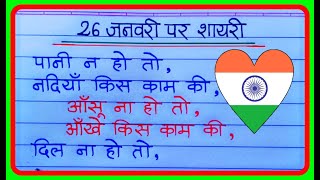 26 जनवरी पर शायरी
पानी न हो तो,
नदियाँ किस काम की,
आँसू ना हो तो,
आँखें किस काम की,
दिल ना हो तो,